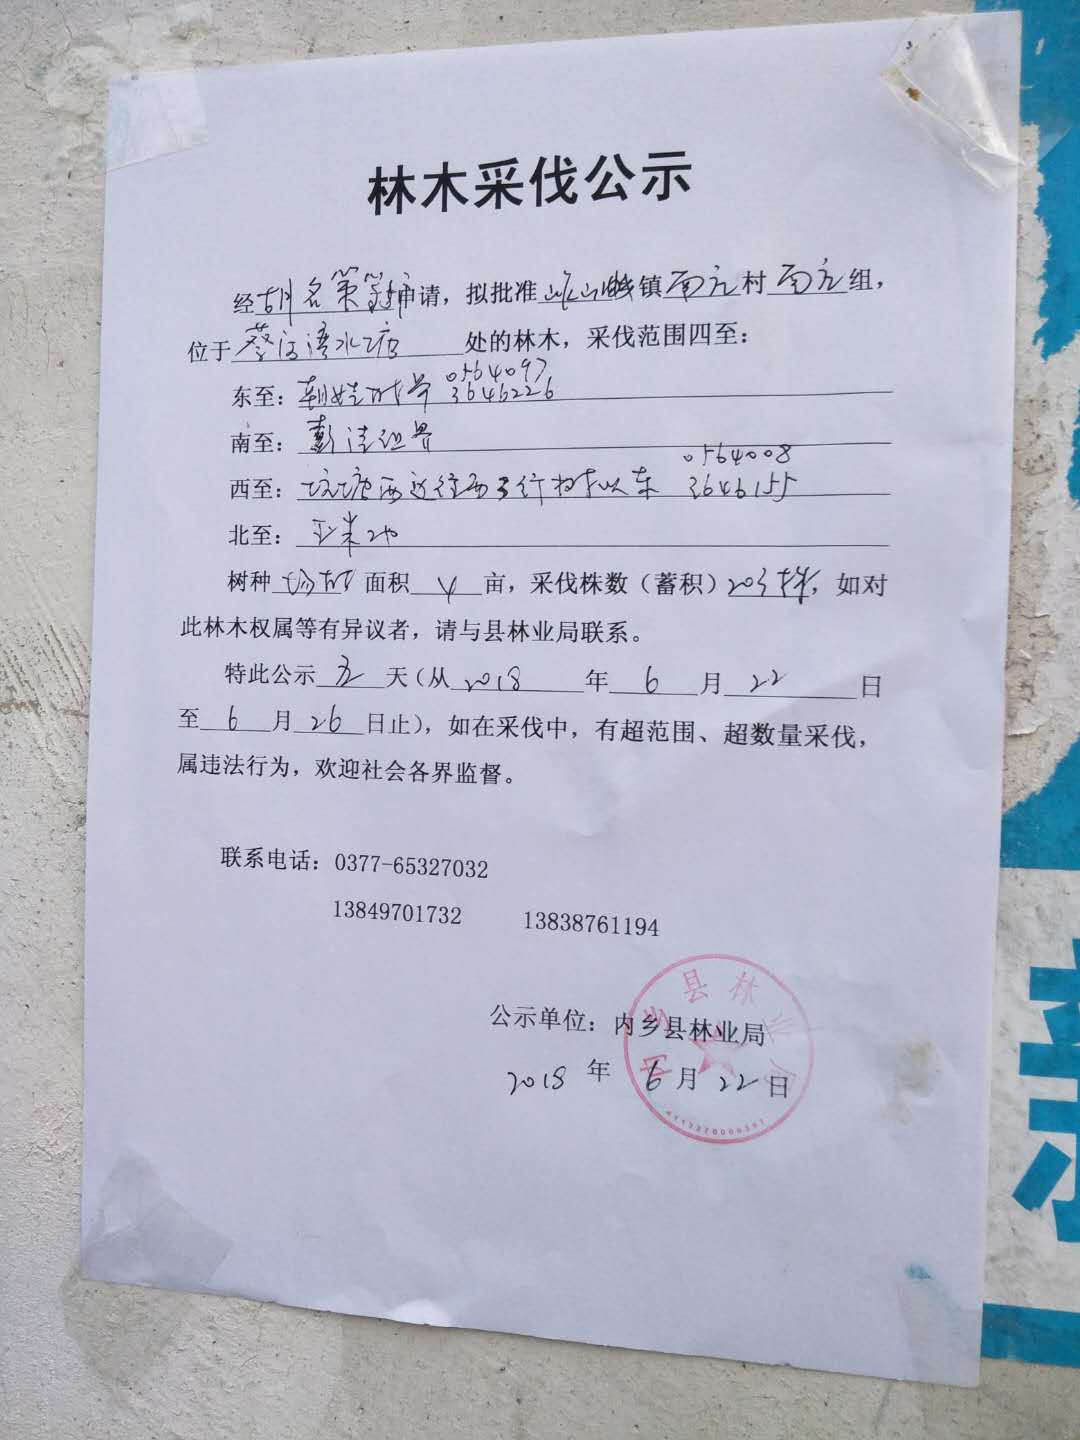 林木采伐公示
经胡名策等申请，拟批准岞山曲镇南元村南元组，
位于 清水塘处的林木，采伐范围四至：
东至： 0564097
3646226
南至： 边界
西至： 西边往西3行树以东 0564008
3646155
北至：玉米地
树种杨树面积4亩，采伐株数（蓄积）203株，如对
此林木权属等有异议者，请与县林业局联系。
特此公示五天（从2018年6月22日
至6月26日止），如在采伐中，有超范围、超数量采伐，
属违法行为，欢迎社会各界监督。
联系电话：0377-65327032
13849701732 13838761194
公示单位：内乡县林业局
2018年6月22日
内乡县林业局